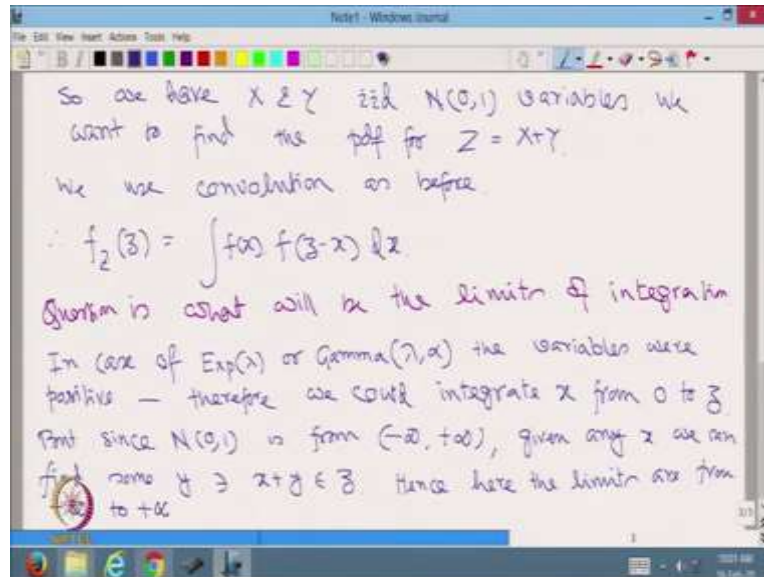 Note1 - Windows Journal
File Edit View Insert Actions Tools Help
So we have X & Y iid N(0,1) variables we
want to find the pdf for Z = X+Y
We use convolution as before.
∴ f_Z(z) = ∫ f(x) f(z-x) dx
Question is what will be the limits of integration
In case of Exp(λ) or Gamma(λ,α) the variables were
positive — therefore we could integrate x from 0 to z
But since N(0,1) is from (-∞, +∞), given any x we can
find some y ∋ x+y ∈ z Hence here the limits are from
to +∞